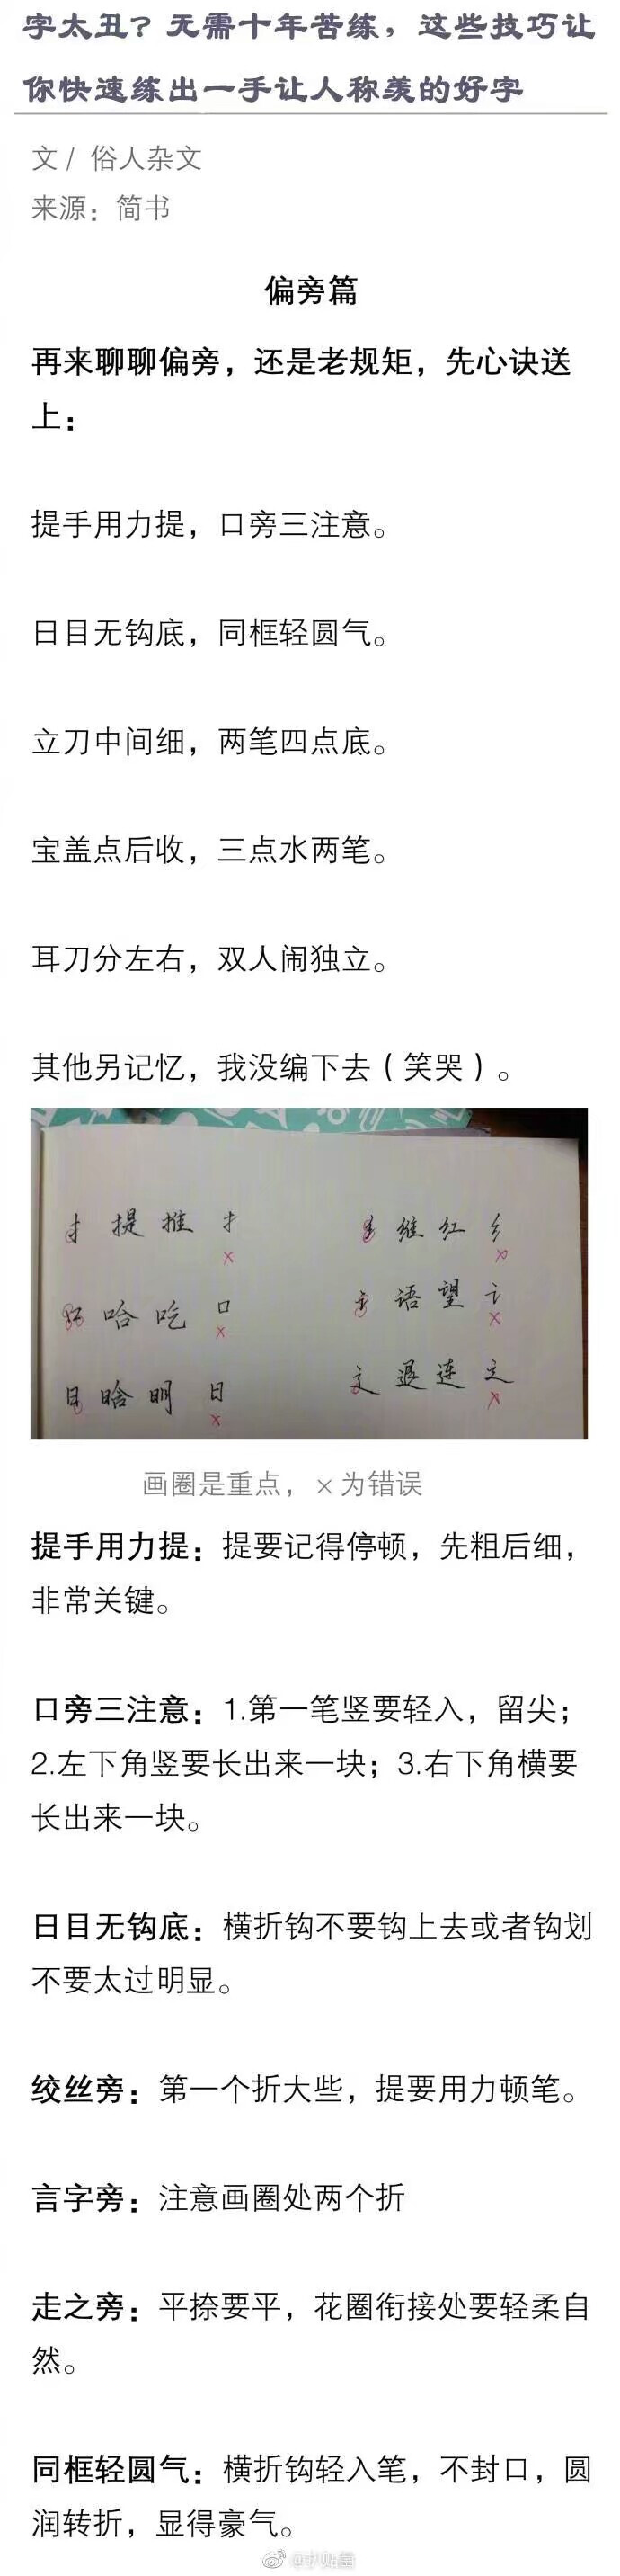 字太丑？无需十年苦练，这些技巧让
你快速练出一手让人称羡的好字
文 / 俗人杂文
来源：简书
偏旁篇
再来聊聊偏旁，还是老规矩，先心诀送
上：
提手用力提，口旁三注意。
日目无钩底，同框轻圆气。
立刀中间细，两笔四点底。
宝盖点后收，三点水两笔。
耳刀分左右，双人闹独立。
其他另记忆，我没编下去（笑哭）。
扌 提 推 扌
×
纟 维 红 纟
×
口 哈 吃 口
×
讠 语 望 讠
×
日 晗 明 日
×
辶 退 连 辶
×
画圈是重点，×为错误
提手用力提：提要记得停顿，先粗后细，
非常关键。
口旁三注意：1.第一笔竖要轻入，留尖；
2.左下角竖要长出来一块；3.右下角横要
长出来一块。
日目无钩底：横折钩不要钩上去或者钩划
不要太过明显。
绞丝旁：第一个折大些，提要用力顿笔。
言字旁：注意画圈处两个折
走之旁：平捺要平，花圈衔接处要轻柔自
然。
同框轻圆气：横折钩轻入笔，不封口，圆
润转折，显得豪气。